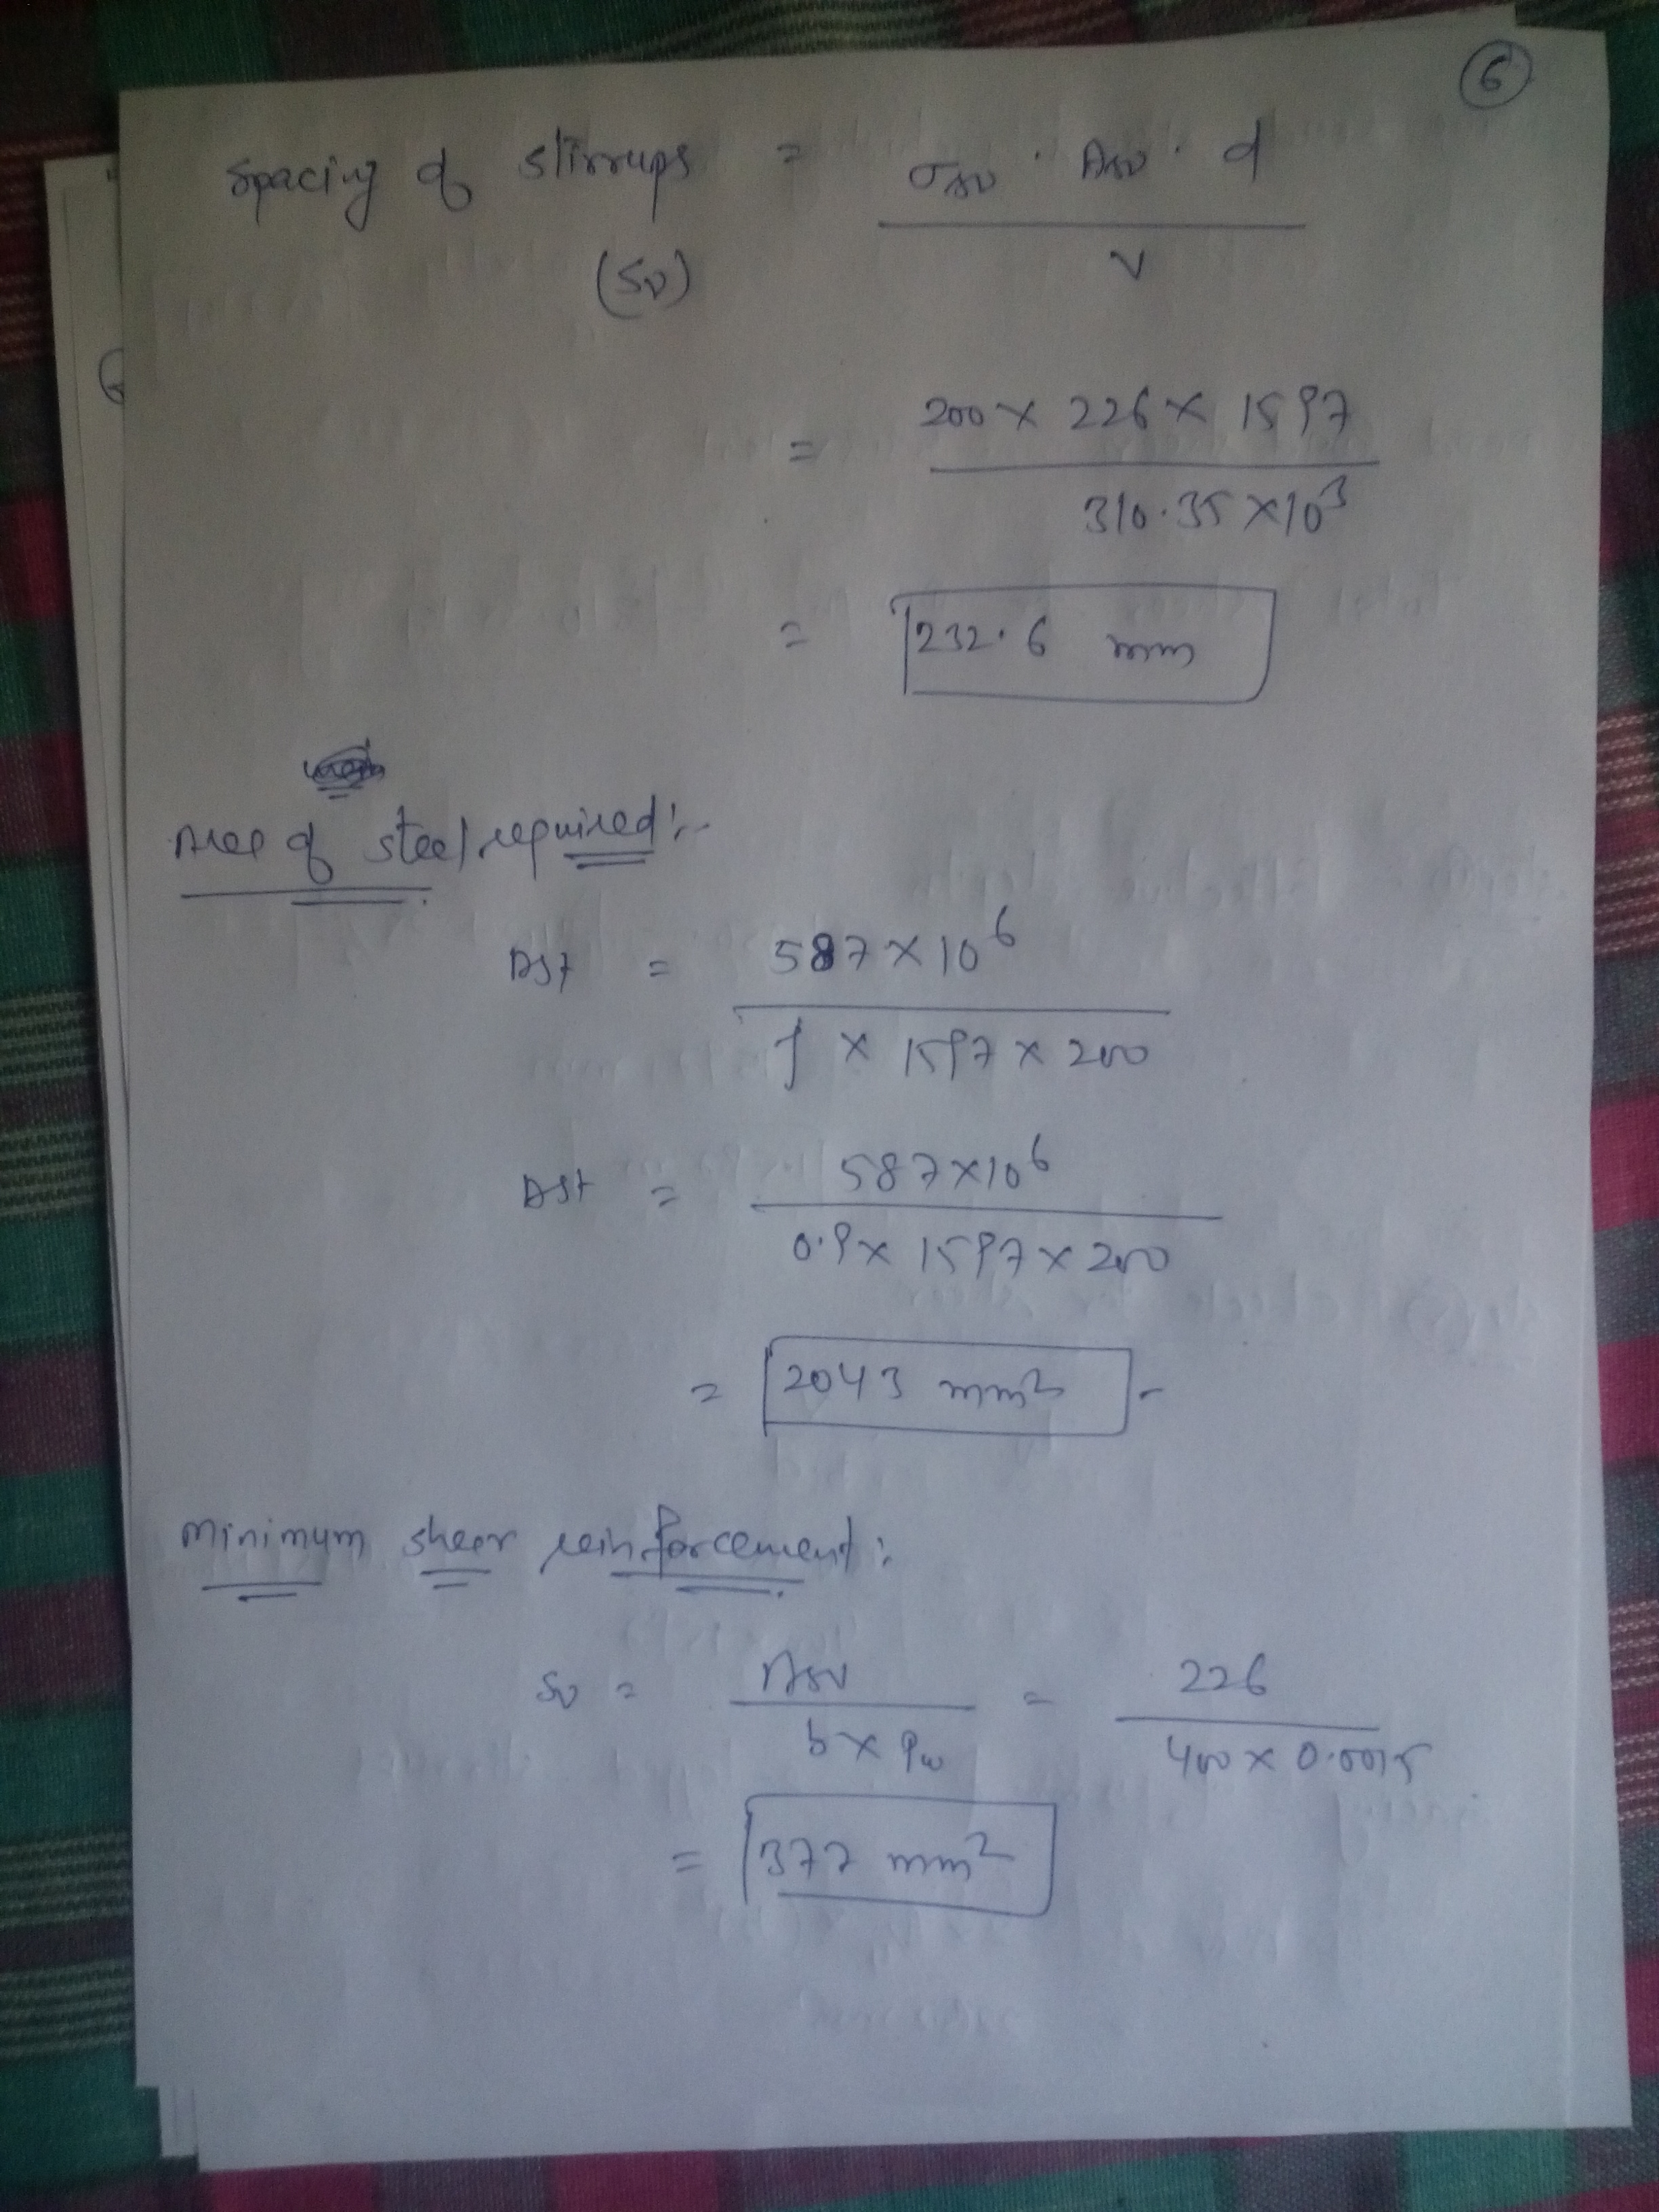 6
Spacing of stirrups = σsv . Asv . d
(Sv) V
= 200 × 226 × 1597
310.35 × 10³
= 232.6 mm
Area of steel required :-
Ast = 587 × 10⁶
j × 1597 × 200
Ast = 587 × 10⁶
0.9 × 1597 × 200
= 2043 mm²
Minimum shear reinforcement :
Sv = Asv = 226
b × ρw 400 × 0.0015
= 377 mm²